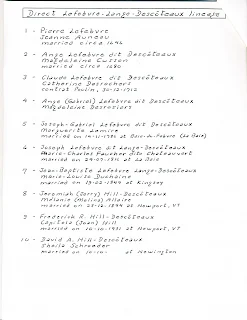 Direct Lefebvre-Lange-Descôteaux lineage
1 - Pierre Lefebvre
Jeanne Auneau
married circa 1646
2 - Ange Lefebvre dit Descôteaux
Magdeleine Cusson
married circa 1680
3 - Claude Lefebvre dit Descôteaux
Catherine
contrat Poulin, 30-12-1712
4 - Ange (Gabriel) Lefebvre dit Descôteaux
Magdeleine Desrosiers
5 - Joseph-Gabriel Lefebvre dit Descôteaux
Marguerite Lemire
married on
6 - Joseph Lefebvre dit Descôteaux
Marie-Charles Faucher dit Chateauvert
married on at La Baie
7 - Jean-Baptiste Lefebvre Lange-Descôteaux
Marie-Louise Duchaine
married on at Kingsey
8 - Jeremiah (Jerry) Hill-Descôteaux
Mélanie Allaire
married on at Newport, VT
9 - Frederick R. Hill-Descôteaux
(Joan) Hill
married on at Newport, VT
10 - David A. Hill-Descôteaux
Sheila Schroeder
married on at Newington